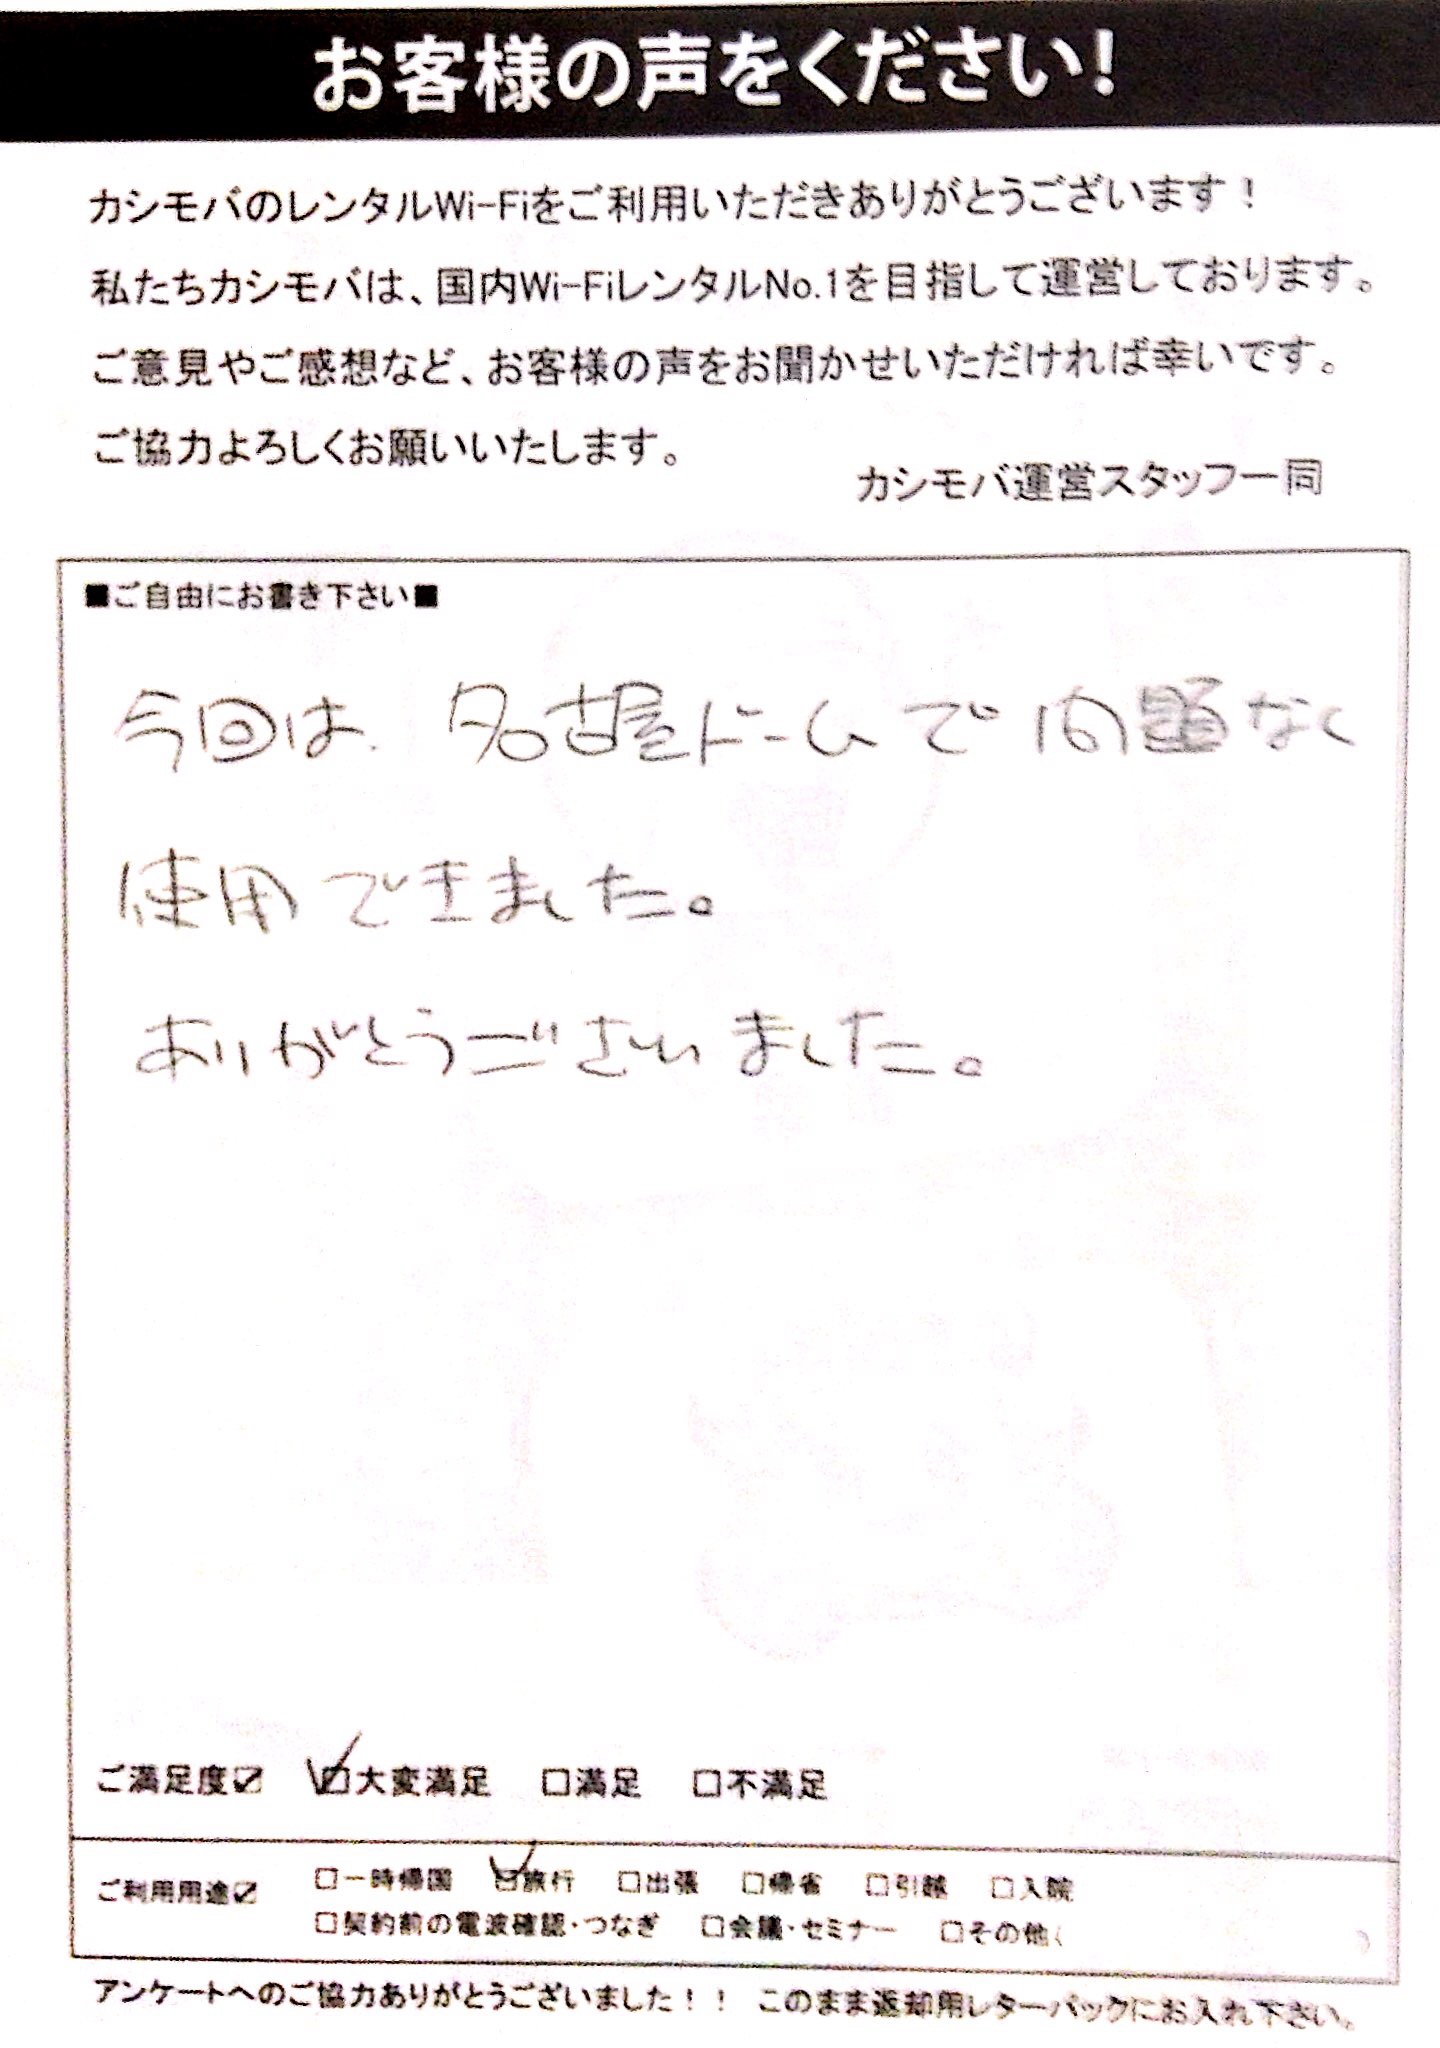 お客様の声をください!
カシモバのレンタルWi-Fiをご利用いただきありがとうございます!
私たちカシモバは、国内Wi-FiレンタルNo.1を目指して運営しております。
ご意見やご感想など、お客様の声をお聞かせいただければ幸いです。
ご協力よろしくお願いいたします。
カシモバ運営スタッフ一同
■ご自由にお書き下さい■
今回は、名古屋ドームで問題なく
使用できました。
ありがとうございました。
ご満足度☑ ☑大変満足 □満足 □不満足
ご利用用途☑ □一時帰国 ☑旅行 □出張 □帰省 □引越 □入院
□契約前の電波確認・つなぎ □会議・セミナー □その他( )
アンケートへのご協力ありがとうございました!! このまま返却用レターパックにお入れ下さい。